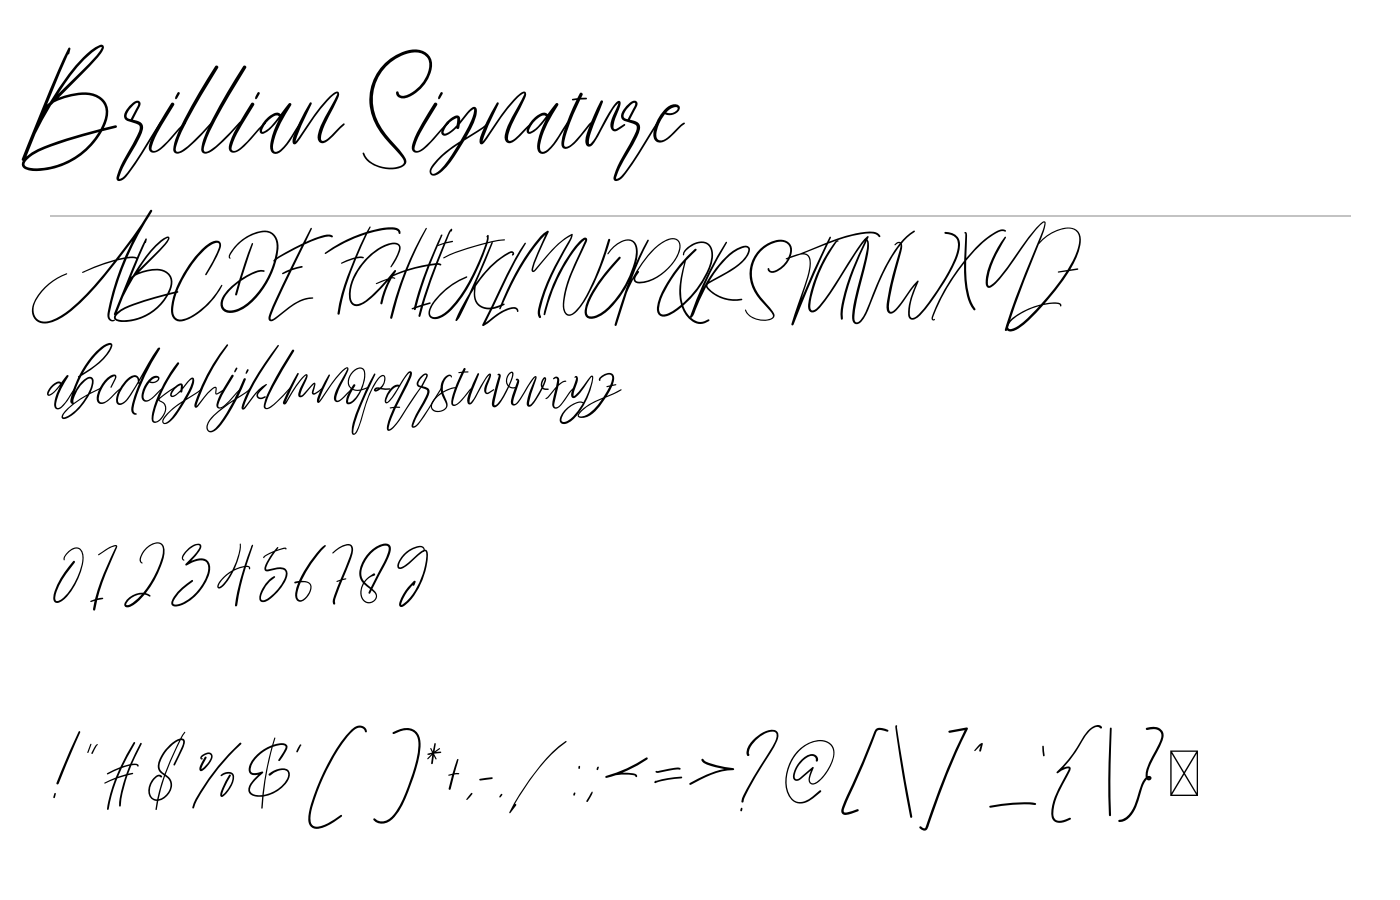 Brillian Signature
ABCDEFGHIJKLMNOPQRSTUVWXYZ
abcdefghijklmnopqrstuvwxyz
0123456789
!"#$%&'()*+,-./:;<=>?@[\]^_`{|}